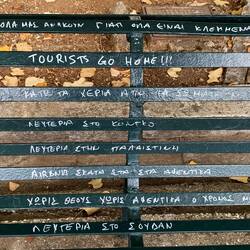 ΟΛΑ ΜΑΣ ΑΝΗΚΟΥΝ ΓΙΑΤΙ ΟΛΑ ΕΙΝΑΙ ΚΛΕΜΜΕΝΑ
TOURISTS GO HOME!!!
ΚΑΤΩ ΤΑ ΧΕΡΙΑ ΑΠΟ ΤΑ
ΛΕΥΤΕΡΙΑ ΣΤΟ ΚΟΝΓΚΟ
ΛΕΥΤΕΡΙΑ ΣΤΗΝ ΠΑΛΑΙΣΤΙΝΗ
AIRBNB ΣΚΑΤΑ ΣΤΑ ΑΦΕΝΤΙΚΑ
ΧΩΡΙΣ ΘΕΟΥΣ ΧΩΡΙΣ ΑΦΕΝΤΙΚΑ Ο ΧΡΟΝΟΣ
ΛΕΥΤΕΡΙΑ ΣΤΟ ΣΟΥΔΑΝ